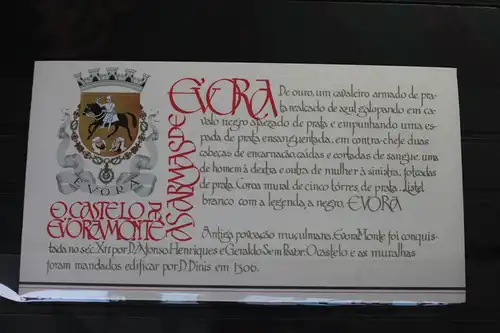 EVORA
O CASTELO DE
EVORAMONTE
AS ARMAS DE
EVORA
De ouro, um cavaleiro armado de pra-
ta realçado de azul, galopando em ca-
valo negro ajaezado de prata e empunhando uma es-
pada de prata ensanguentada, em contra-chefe duas
cabeças de encarnação, caidas e cortadas de sangue, uma
de homem à dextra e outra de mulher à sinistra, toucadas
de prata. Coroa mural de cinco tôrres, de prata. Listel
branco com a legenda, a negro, EVORA
Antiga povoação muçulmana, EvoraMonte foi conquis-
tada no séc. XII por D. Afonso Henriques e Geraldo Sem Pavor. O castelo e as muralhas
foram mandados edificar por D. Dinis em 1306.